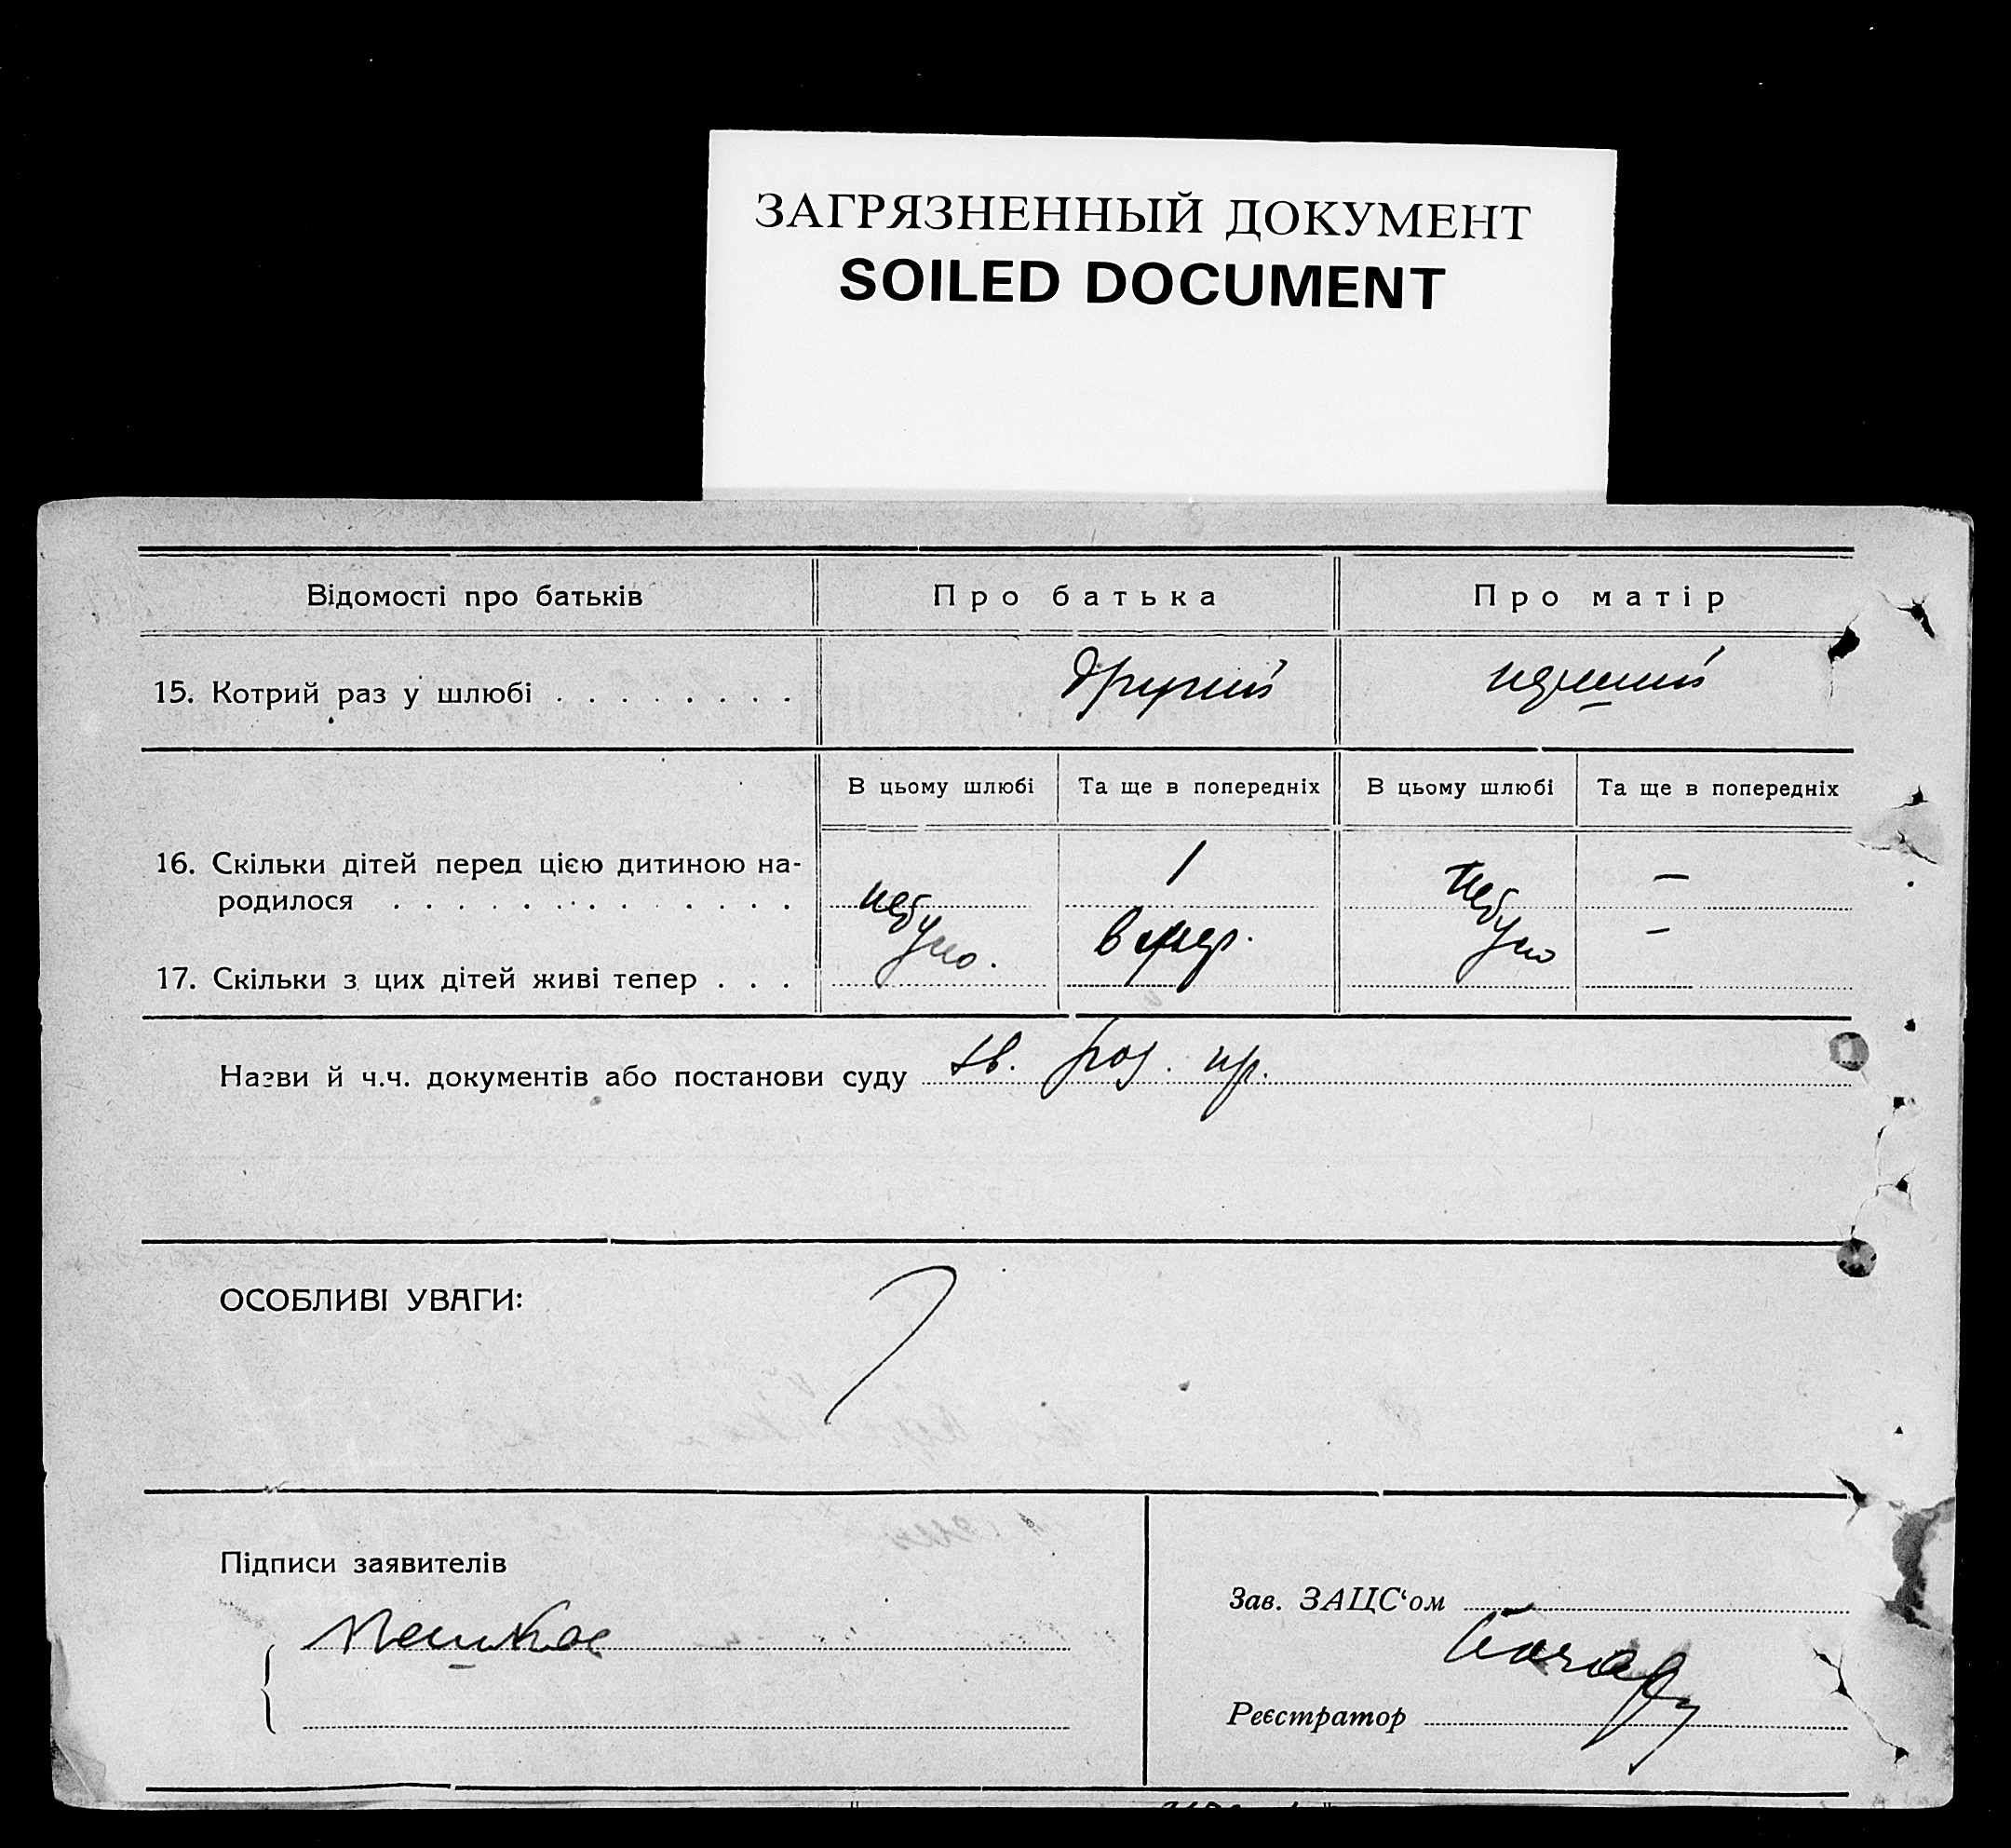 ЗАГРЯЗНЕННЫЙ ДОКУМЕНТ
SOILED DOCUMENT
Відомості про батьків Про батька Про матір
15. Котрий раз у шлюбі . . . . . . . . другий перший
В цьому шлюбі Та ще в попередніх В цьому шлюбі Та ще в попередніх
16. Скільки дітей перед цією дитиною на-
родилося . . . . . . . . . . . . . небуло. 1 небуло —
17. Скільки з цих дітей живі тепер . . . вмер. –
Назви й ч.ч. документів або постанови суду
ОСОБЛИВІ УВАГИ:
Підписи заявителів
Зав. ЗАЦС‘ом
Реєстратор